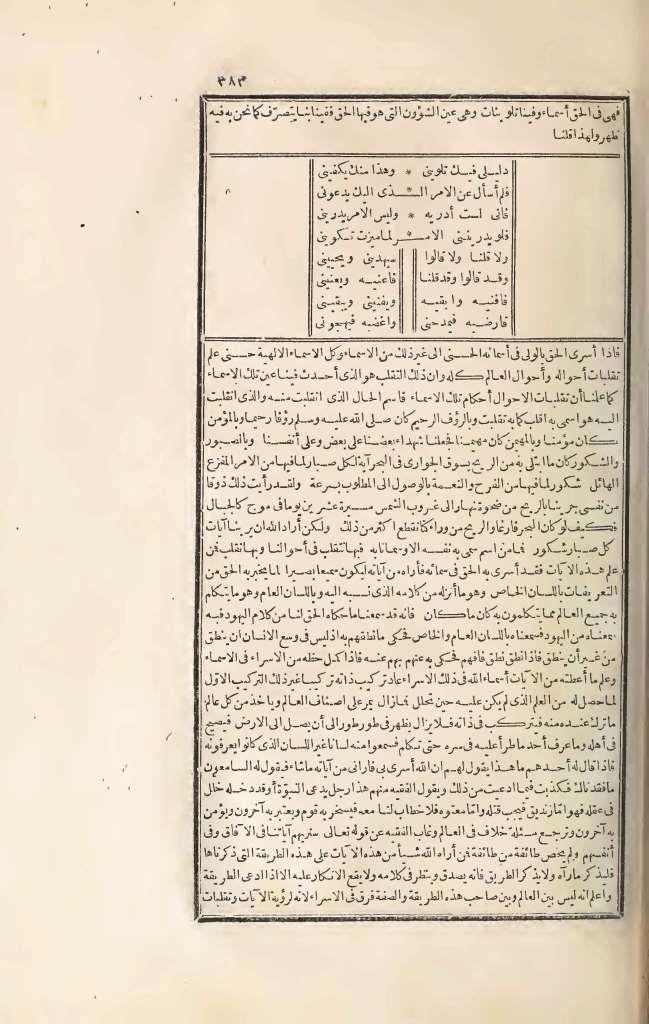 ٣٨٣
فهى فى الحق أسماء وفينا تلوينات وهى عين الشؤون التى هو فيها الحق ففينا بنا يتصرّف كما نحن به فيه
ظهر ولهذا قلنا
دليلى فيك تلوينى * وهذا منك يكفينى
فلم أسأل عن الامر الذى اليك يدعونى
فانى لست أدريه * وليس الامر يدرينى
فلو يدريننى الامر لما ميزت تكوينى
ولا قلنا ولا قالوا سيهدينى ويحيينى
وقد قالوا وقد قلنا فاعنيه ويعنينى
فافنيه وابقيه ويفنينى ويبقينى
فارضيه فيمدحنى واغضبه فيهجونى
فاذا أسرى الحق بالولى فى أسمائه الحسنى الى غير ذلك من الاسماء وكل الاسماء الالهية حسنى علم
تقلبات أحواله وأحوال العالم كله وان ذلك التقلب هو الذى أحدث فينا عين تلك الاسماء
كما علمنا أن تقلبات الاحوال أحكام تلك الاسماء فاسم الحال الذى انقلبت منه والذى انقلبت
اليه هو اسمى به أقلب كما به تقلبت وبالرؤف الرحيم كان صلى الله عليه وسلم رؤفا رحيما وبالمؤمن
كان مؤمنا وبالمهيمن كان مهيمنا فجعلنا شهداء بعضنا على بعض وعلى أنفسنا وبالصبور
والشكور كان ما ابتلى به من الريح بسوق الجوارى فى البحر آية لكل صبار لما فيها من الامر المفزع
الهائل شكور لما فيها من الفرح والنعمة بالوصول الى المطلوب بسرعة ولقد رأيت ذلك ذوقا
من نفسى جرينا بالريح من ضحوة نهار الى غروب الشمس مسيرة عشرين يوما فى موج كالجبال
فكيف لو كان البحر فارغا والريح من وراء كنا نقطع أكثر من ذلك ولكن أراد الله ان يرينا آيات
كل صبار شكور فما من اسم سمى به نفسه الا وسمانا به فبها نتقلب فى أحوالنا وبها نقلب فمن
علم هذه الآيات فقد أسرى به الحق فى سمائه فأراه من آياته ليكون سميعا بصيرا لما يخبر به الحق من
التعريفات باللسان الخاص وهو ما أنزله من كلامه الذى نسبه اليه وباللسان العام وهو ما يتكلم
به جميع العالم مما يتكلمون به كان ما كان فانه قد سمعنا ما حكاه الحق لنا من كلام اليهود فيه
سمعناه من اليهود فسمعناه باللسان العام والخاص فحكى ما نطقهم به اذ ليس فى وسع الانسان ان ينطق
من غير أن ينطق فاذا نطق نطق فافهم فحكى به عنهم بهم عنه فاذا كمل حظه من الاسراء فى الاسماء
وعلم ما أعطته من الآيات أسماء الله فى ذلك الاسراء عاد تركيب ذاته تركيبا غير ذلك التركيب الاوّل
لما حصل له من العلم الذى لم يكن عليه حين تحلل فما زال يمر على اصناف العالم وياخذ من كل عالم
ما ترك عنده منه فتركب فى ذاته فلا يزال يظهر فى طور طور الى أن يصل الى الارض فيصبح
فى أهله وما عرف أحد ما طرأ عليه فى سره حتى تكلم فسمعوا منه لسانا غير اللسان الذى كانوا يعرفونه
فاذا قال له أحدهم ما هذا يقول لهم ان الله أسرى بى فارانى من آياته ما شاء فيقول له السامعون
ما فقدناك فكذبت فيما ادعيت من ذلك ويقول الفقيه منهم هذا رجل يدعى النبوّة أو قد دخله خلل
فى عقله فهو امّا زنديق فيجب قتله وامّا معتوه فلا خطاب لنا معه فيسخر به قوم ويعتبر به آخرون ويؤمن
به آخرون وترجع مسئلة خلاف فى العالم وغاب الفقيه عن قوله تعالى سنريهم آياتنا فى الآفاق وفى
أنفسهم ولم يخص طائفة من طائفة فمن أراه الله شيأ من هذه الآيات على هذه الطريقة التى ذكرناها
فليذكر ما رآه ولا يذكر الطريق فانه يصدق وينظر فى كلامه ولا يقع الانكار عليه الا اذا ادعى الطريقة
واعلم انه ليس بين العالم وبين صاحب هذه الطريقة والصفة فرق فى الاسراء لانه لرؤية الآيات وتقلبات